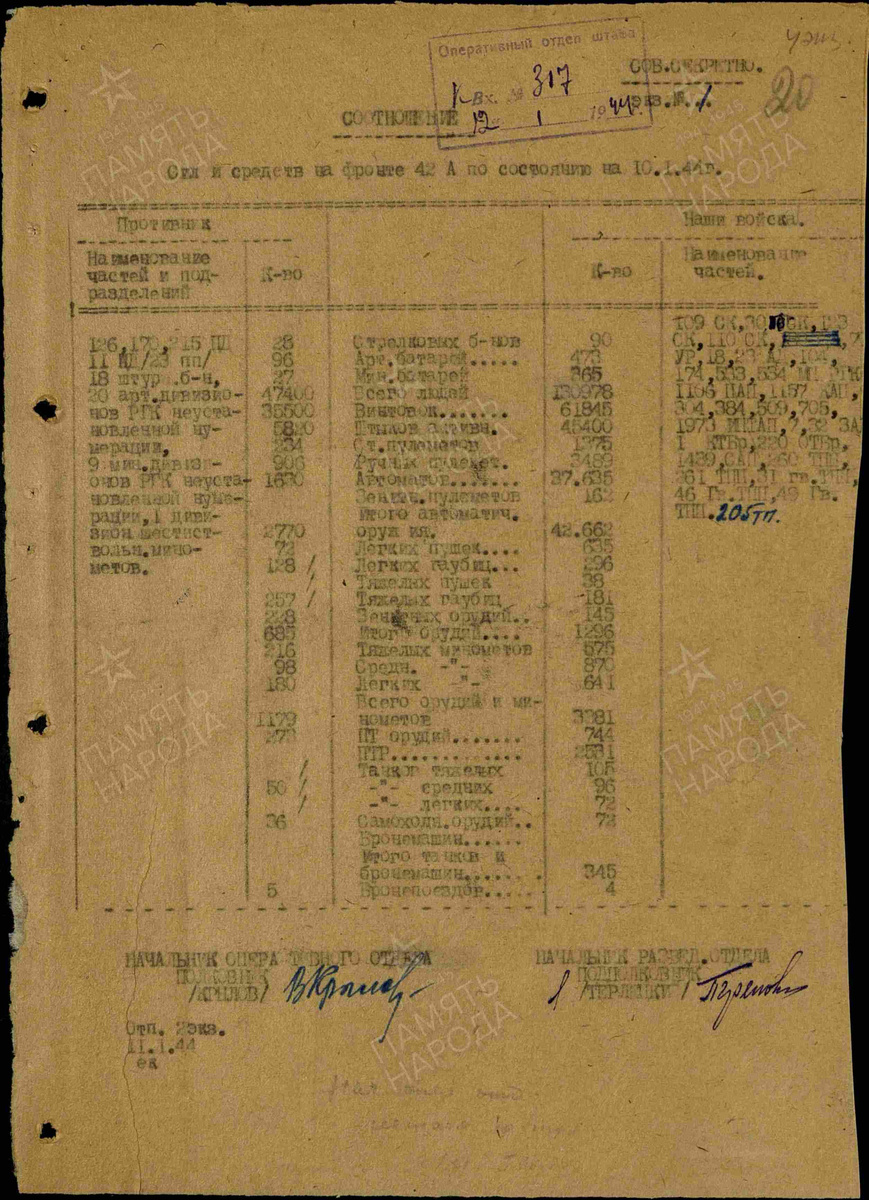 Оперативный отдел штаба
Вх. № 317
12 1 1944г.
СОВ.СЕКРЕТНО.
экз.№ 1
20
СООТНОШЕНИЕ
Сил и средств на фронте 42 А по состоянию на 10.1.44г.
Противник Наши войска.
Наименование частей и подразделений К-во К-во Наименование частей.
126,170,215 ПД
11 ПД/23 пп/
18 штурм.б-н,
20 арт.дивизио-
нов РГК неуста-
новленной ну-
мерации,
9 мин.дивизи-
онов РГК неуста-
новленной нуме-
рации, 1 диви-
зион шестист-
вольн.мино-
метов.
28 Стрелковых б-нов 90
96 Арт.батарей..... 473
27 Мин.батарей 365
47400 Всего людей 130978
35500 Винтовок....... 61845
5820 Штыков активн. 45400
234 Ст.пулеметов 1375
906 Ручных пулемет. 3489
1630 Автоматов..... 37.635
Зенитн.пулеметов 162
Итого автоматич.
2770 оружия. 42.662
72 Легких пушек.... 635
128 Легких гаубиц... 296
Тяжелых пушек 38
257 Тяжелых гаубиц 181
228 Зенитных орудий.. 145
685 Итого орудий.... 1296
216 Тяжелых минометов 575
98 Средн. -"- 870
180 Легких -"- 641
Всего орудий и ми-
1179 нометов 3381
273 ПТ орудий....... 744
ПТР............. 2531
Танков тяжелых 105
50 -"- средних 96
-"- легких.... 72
36 Самоходн.орудий.. 72
Бронемашин......
Итого танков и
бронемашин....... 345
5 Бронепоездов..... 4
109 СК,30 СК,123
СК,110 СК,
УР,18,23 АД,
174,533,534 МП РГК
1106 ПАП,1157 КАП,
304,384,509,705,
1973 ИПТАП,
1 КТБр,220 ОТБр,
1439 САП,260 ТПП,
261 ТПП,31 гв.ТПП,
46 Гв.ТПП,49 Гв.
ТПП. 205тп.
НАЧАЛЬНИК ОПЕРАТИВНОГО ОТДЕЛА
ПОЛКОВНИК
/КРЫЛОВ/
НАЧАЛЬНИК РАЗВЕД.ОТДЕЛА
ПОДПОЛКОВНИК
/ТЕРЛЕЦКИЙ/
Отп. 2экз.
11.1.44
ек
ПАМЯТЬ НАРОДА